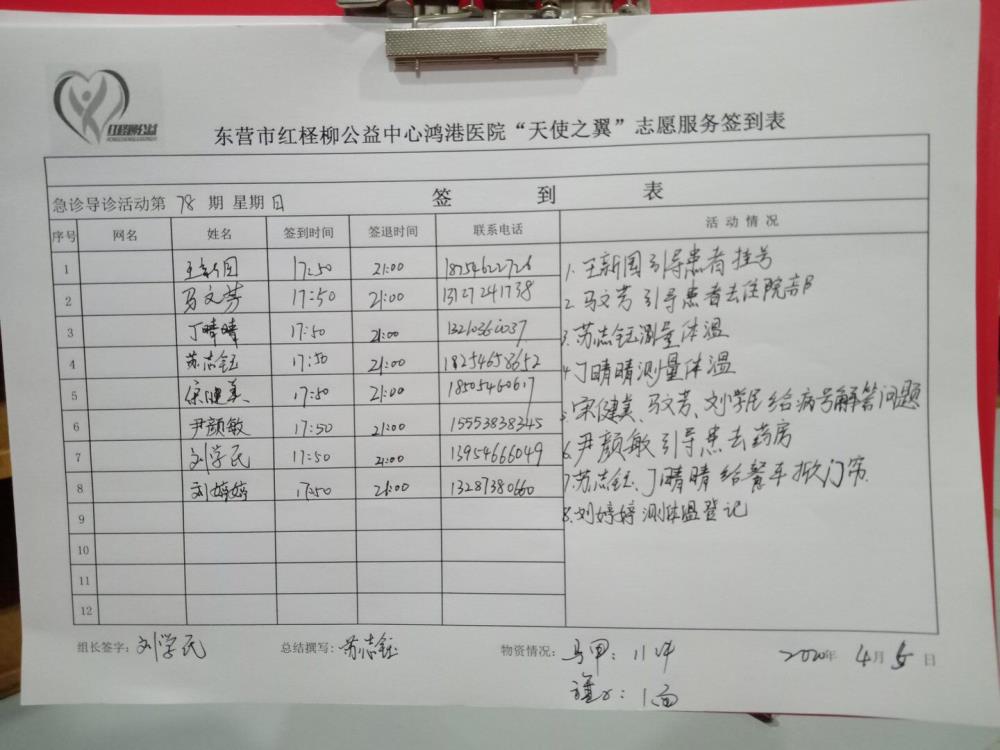 红柽柳公益
东营市红柽柳公益中心鸿港医院“天使之翼”志愿服务签到表
签 到 表
急诊导诊活动第 78 期 星期日
序号 网名 姓名 签到时间 签退时间 联系电话 活动情况
1 王新国 17:50 21:00 18254622726 1. 王新国引导患者挂号
2 马文芳 17:50 21:00 13127241738 2. 马文芳引导患者去住院部
3 丁晴晴 17:50 21:00 13210361037 3. 苏志钰测量体温
4 苏志钰 17:50 21:00 18254658652 4. 丁晴晴测量体温
5 宋健美 17:50 21:00 18505460617 5. 宋健美、马文芳、刘学民给病号解答问题
6 尹颜敏 17:50 21:00 15553838345 6. 尹颜敏引导患去药房
7 刘学民 17:50 21:00 13954666049 7. 苏志钰、丁晴晴给餐车掀门帘
8 刘婷婷 17:50 21:00 13287380660 8. 刘婷婷测体温登记
9
10
11
12
组长签字：刘学民 总结撰写：苏志钰 物资情况：马甲：11件 2020年 4月 5日
1面